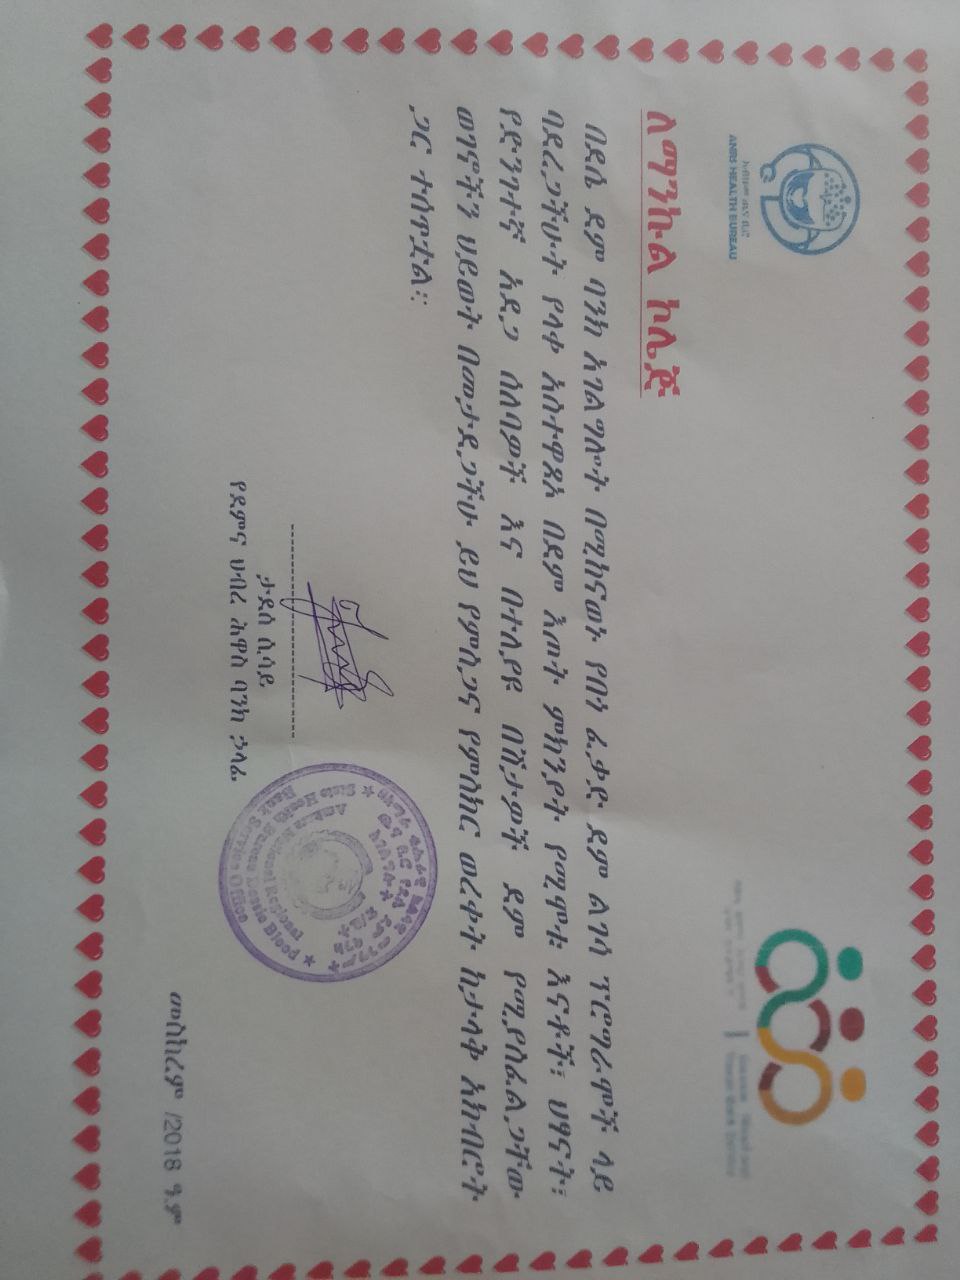 አብክመ ጤና ቢሮ
ANRS HEALTH BUREAU
ለማንኩል ኮሌጅ
በደሴ ደም ባንክ አገልግሎት በሚከናወኑ የበጎ ፈቃድ ደም ልገሳ ፕሮግራሞች ላይ
ባደረጋችሁት የላቀ አስተዋጽኦ በደም እጦት ምክንያት የሚሞቱ እናቶች፣ ህፃናት፣
የድንገተኛ አደጋ ሰለባዎች እና በተለያዩ በሽታዎች ደም የሚያስፈልጋቸው
ወገኖችን ህይወት በመታደጋችሁ ይህ የምስጋና የምስክር ወረቀት ከታላቅ አክብሮት
ጋር ተሰጥቷል።
ታደሰ ሲሳይ
የደምና ህብረ ሕዋስ ባንክ ኃላፊ
Amhara National Regional
State Health Bureau Dessie Blood
Bank Service Office
መስከረም /2018 ዓ.ም